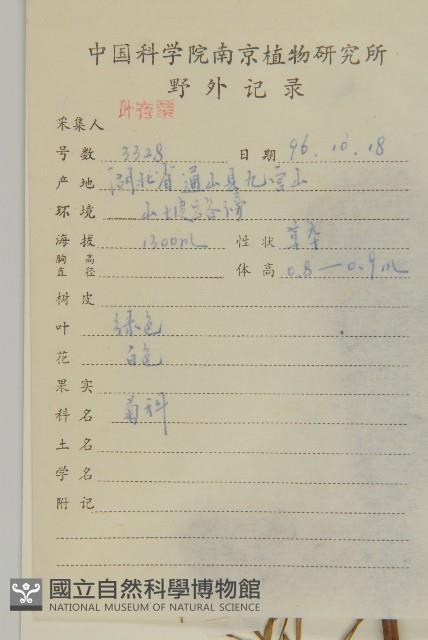 中国科学院南京植物研究所
野外记录
采集人
号数 3328 日期 96.10.18
产地 湖北省通山县九宫山
环境 山坡路旁
海拔 1300m 性状 草本
胸高直径 体高 0.8—0.9m
树皮
叶 绿色
花 白色
果实
科名 菊科
土名
学名
附记
國立自然科學博物館
NATIONAL MUSEUM OF NATURAL SCIENCE